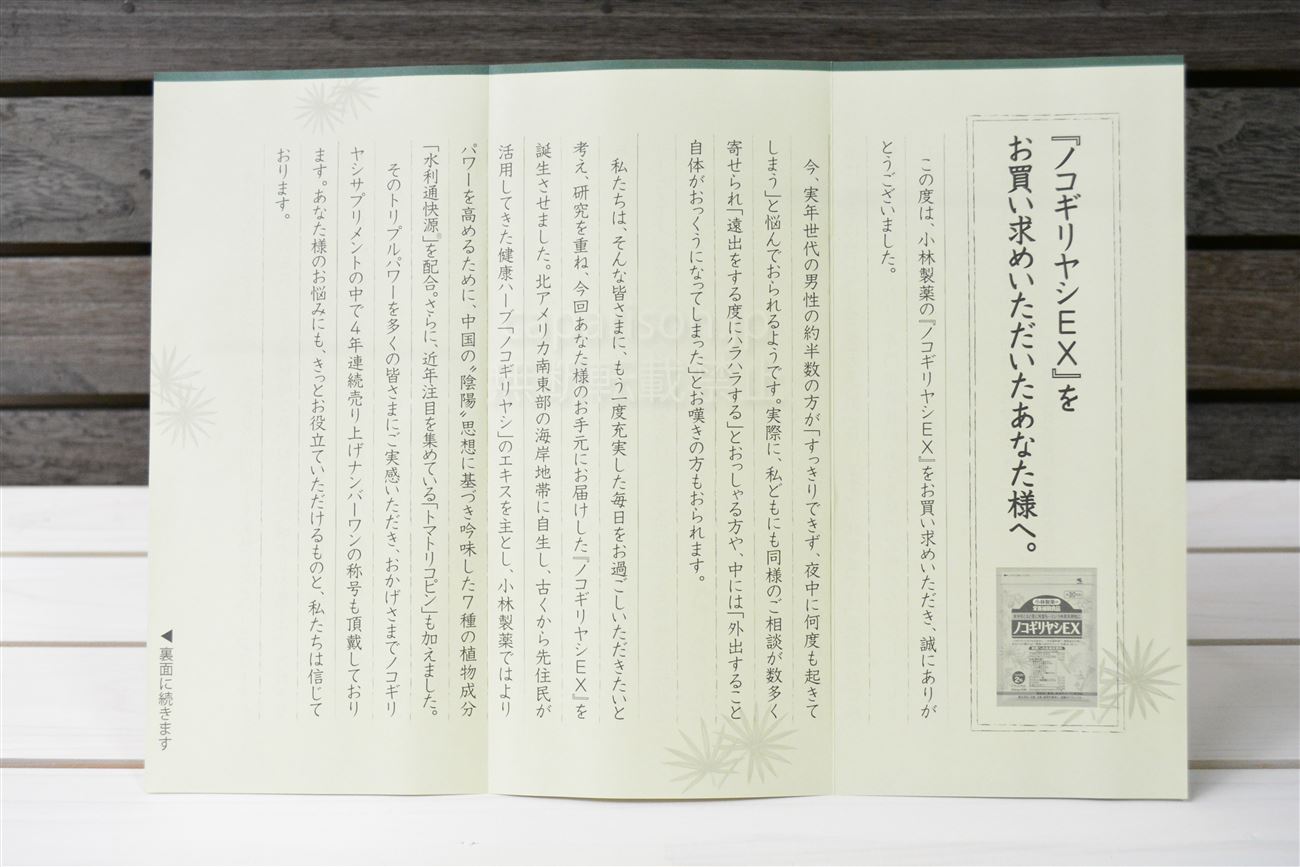 『ノコギリヤシEX』を
お買い求めいただいたあなた様へ。
小林製薬の
栄養補助食品
ノコギリヤシEX
この度は、小林製薬の『ノコギリヤシEX』をお買い求めいただき、誠にありが
とうございました。
今、実年世代の男性の約半数の方が「すっきりできず、夜中に何度も起きて
しまう」と悩んでおられるようです。実際に、私どもにも同様のご相談が数多く
寄せられ「遠出をする度にハラハラする」とおっしゃる方や、中には「外出すること
自体がおっくうになってしまった」とお嘆きの方もおられます。
私たちは、そんな皆さまに、もう一度充実した毎日をお過ごしいただきたいと
考え、研究を重ね、今回あなた様のお手元にお届けした『ノコギリヤシEX』を
誕生させました。北アメリカ南東部の海岸地帯に自生し、古くから先住民が
活用してきた健康ハーブ「ノコギリヤシ」のエキスを主とし、小林製薬ではより
パワーを高めるために、中国の〝陰陽〟思想に基づき吟味した7種の植物成分
「水利通快源®」を配合。さらに、近年注目を集めている「トマトリコピン」も加えました。
そのトリプルパワーを多くの皆さまにご実感いただき、おかげさまでノコギリ
ヤシサプリメントの中で4年連続売り上げナンバーワンの称号も頂戴しており
ます。あなた様のお悩みにも、きっとお役立ていただけるものと、私たちは信じて
おります。
◀裏面に続きます